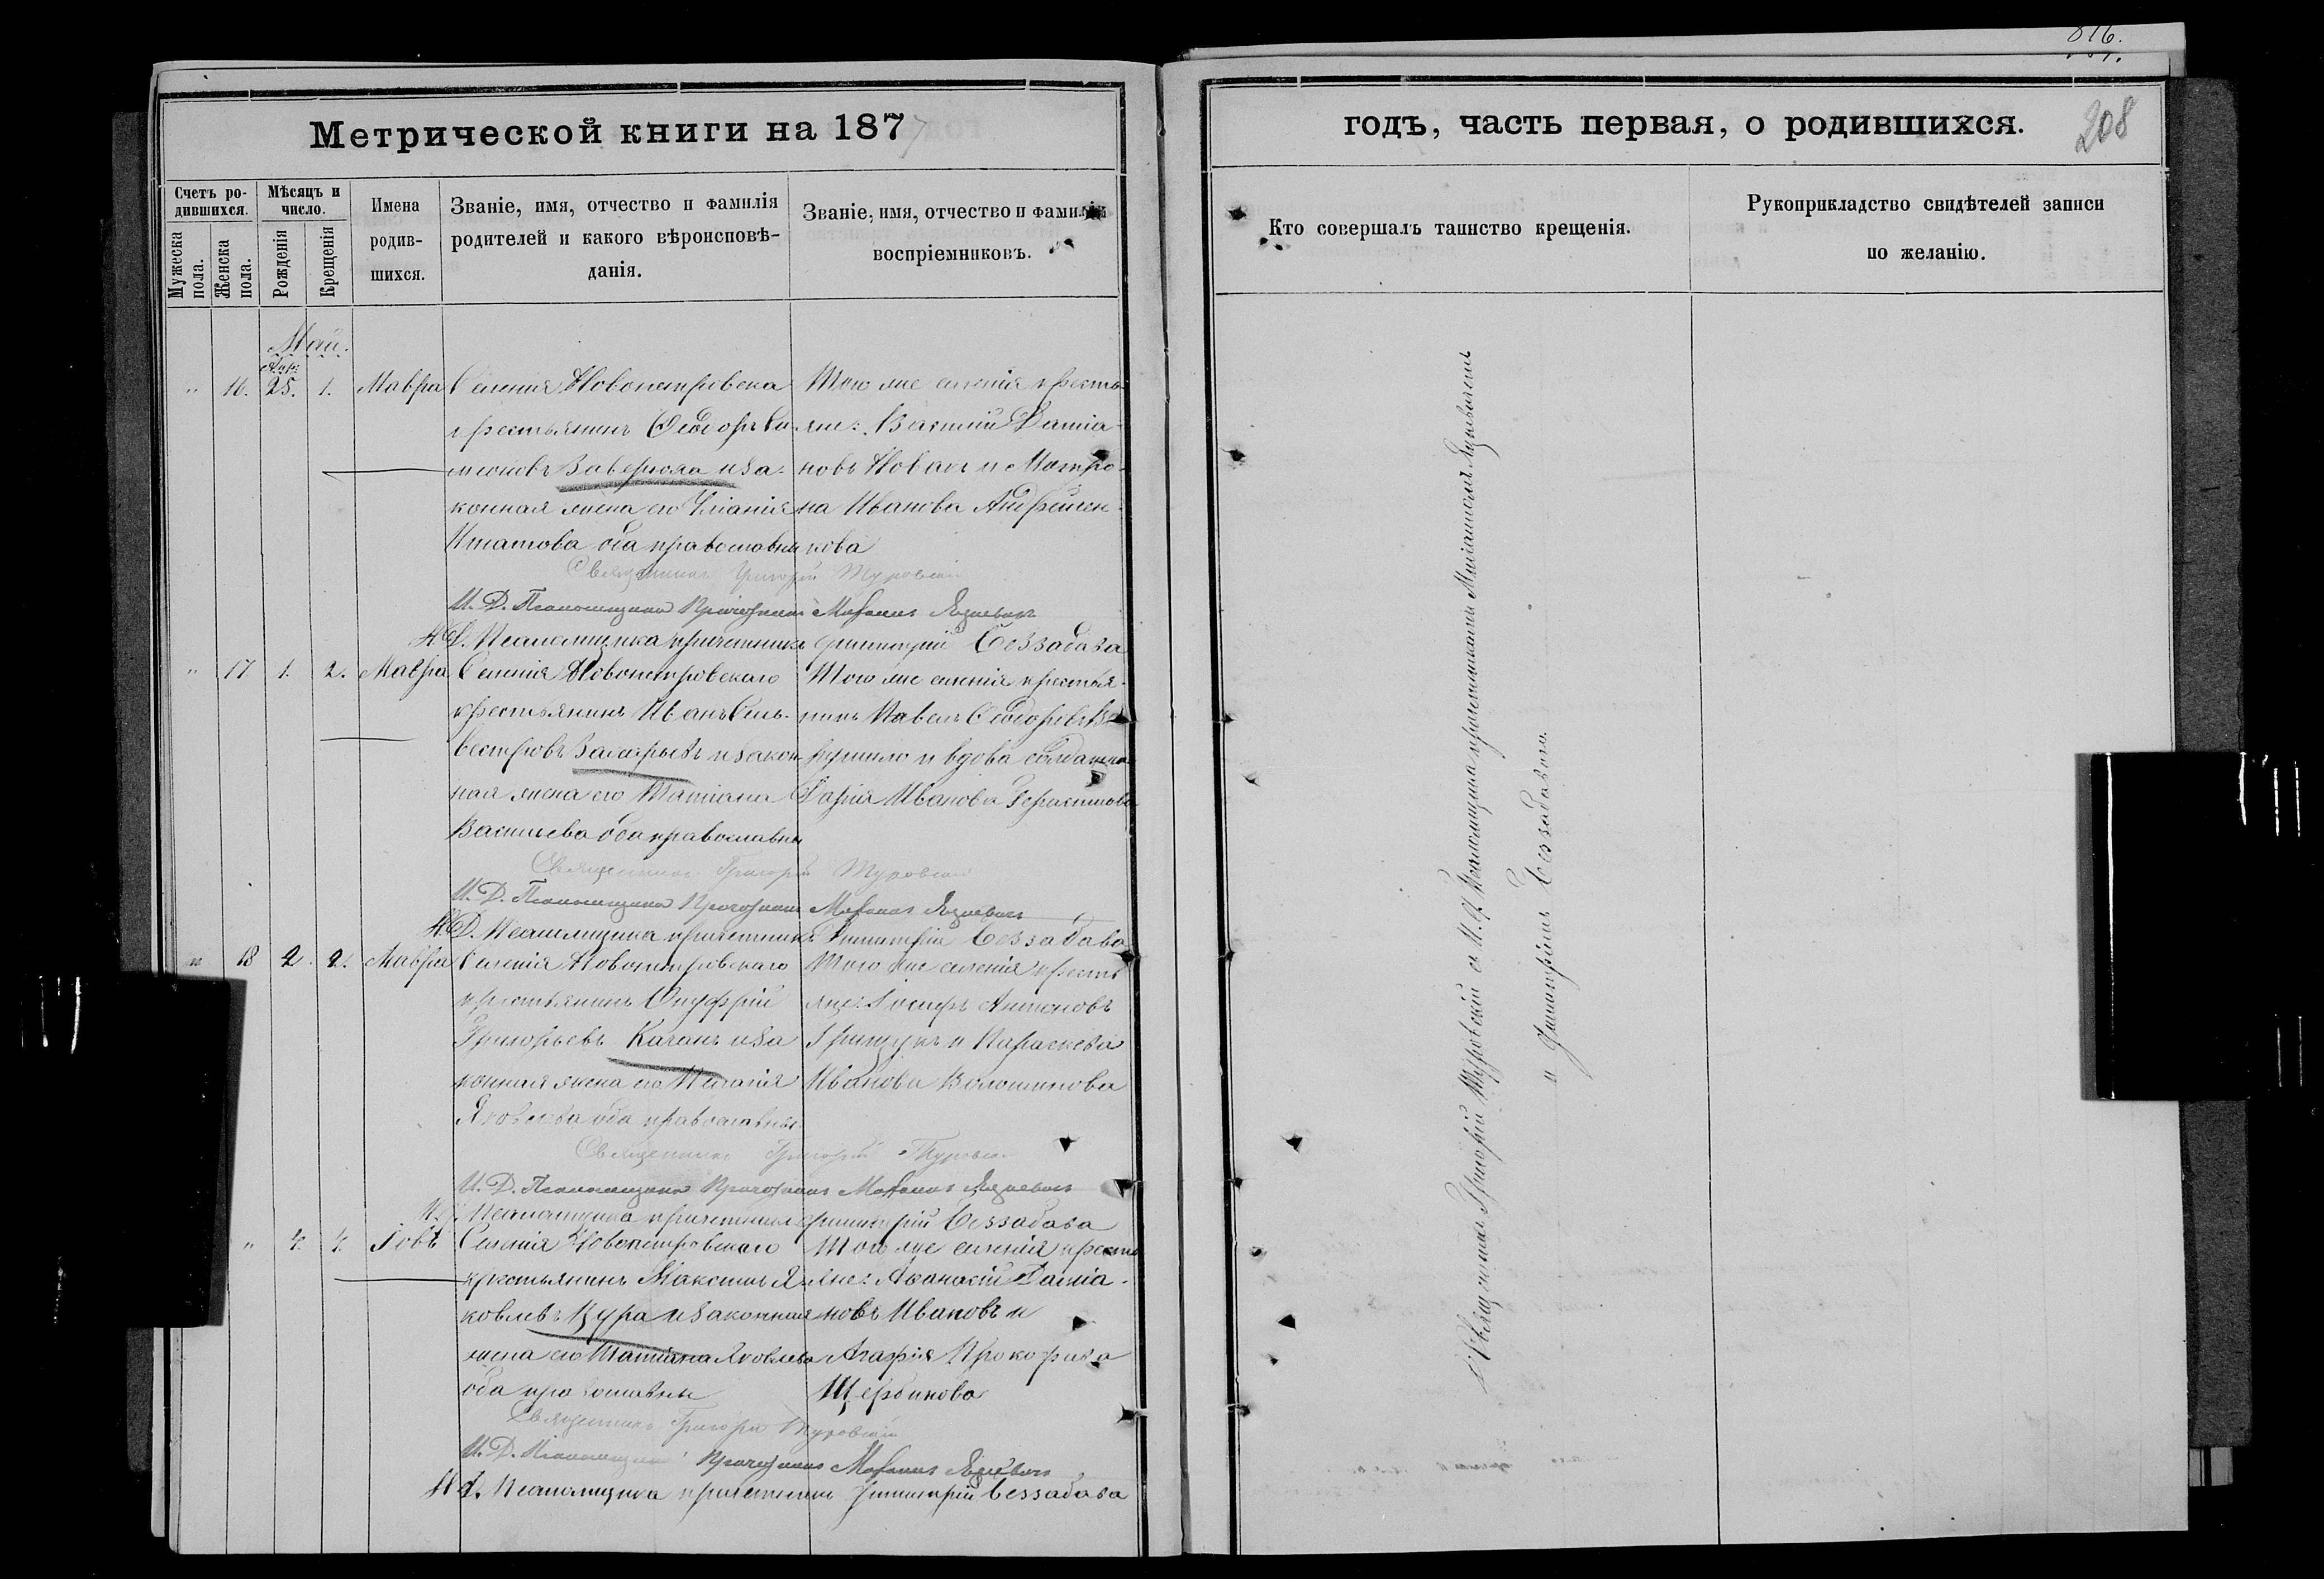 816.
Метрической книги на 1877
годъ, часть первая, о родившихся.
208
Счетъ ро-
дившихся.
Мѣсяцъ и
число.
Мужеска
пола.
Женска
пола.
Рожденія
Крещенія
Имена
родив-
шихся.
Званіе, имя, отчество и фамилія
родителей и какого вѣроисповѣ-
данія.
Званіе, имя, отчество и фамилія
воспріемниковъ.
Кто совершалъ таинство крещенія.
Рукоприкладство свидѣтелей записи
по желанію.
Май.
Апр:
" 16. 25. 1. Мавра
Селенія Новопетровска
крестьянинъ Ѳеодоръ
Заверюха и за-
конная жена его Уліанія
Игнатова оба православны
Того же селенія кресть-
яне: Василій Даміа-
новъ Новакъ и Матро-
на Иванова Андрейчен-
кова
Священникъ Григорій Туровскій
И. Д. Псаломщика Причетникъ Яцкевичъ
И. Д. Псаломщика причетникъ Димитрій Беззабава
" 17 1. 2. Мавра
Селенія Новопетровскаго
крестьянинъ Иванъ Силь-
вестровъ и закон-
ная жена его Татіана
Васильева оба православны
Того же селенія крестья-
нинъ Павелъ Ѳеодоровъ
и вдова солдатка
Дарія Иванова Герасимова
Священникъ Григорій Туровскій
И. Д. Псаломщика Причетникъ Яцкевичъ
И. Д. Псаломщика причетникъ Димитрій Беззабава
" 18 2. 2. Мавра
Селенія Новопетровскаго
крестьянинъ Онуфрій
Григорьевъ Качанъ и за
конная жена его Пелагія
Яковлева оба православны
Того же селенія кресть
яне: Іосифъ Антоновъ
Грищукъ и Параскева
Иванова Волошинова
Священникъ Григорій Туровскій
И. Д. Псаломщика Причетникъ Яцкевичъ
И. Д. Псаломщика причетникъ Димитрій Беззабава
" 4. 4. Іовъ
Селенія Новопетровскаго
крестьянинъ Максимъ Я-
ковлевъ Цура и законная
жена его Татіана Яковлева
оба православны
Того же селенія кресть
яне: Аѳанасій Даміа-
новъ Ивановъ и
Агафія Прокофьева
Щербинова
Священникъ Григорій Туровскій
И. Д. Псаломщика Причетникъ Яцкевичъ
И. Д. Псаломщика причетникъ Димитрій Беззабава
Священникъ Григорій Туровскій съ И. Д. Псаломщика причетниками Яцкевичемъ
и Димитріемъ Беззабавою